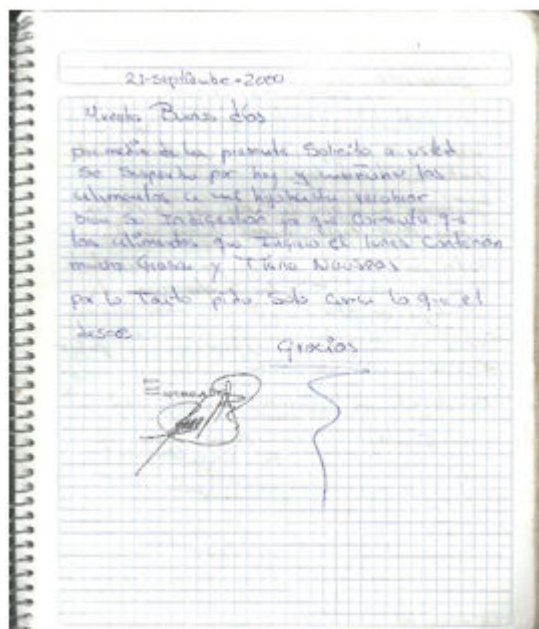 21-septiembre-2000
Buenos días
por medio de la presente Solicito a usted
se suspenda por hoy y mañana los
alimentos a mi
su Indigestion ya que Comenta q-e
los alimentos que Ingirio el lunes Contenian
mucha Grasa y Tiene Nauseas
por lo Tanto pido Solo lo q-e el
desee
Gracias